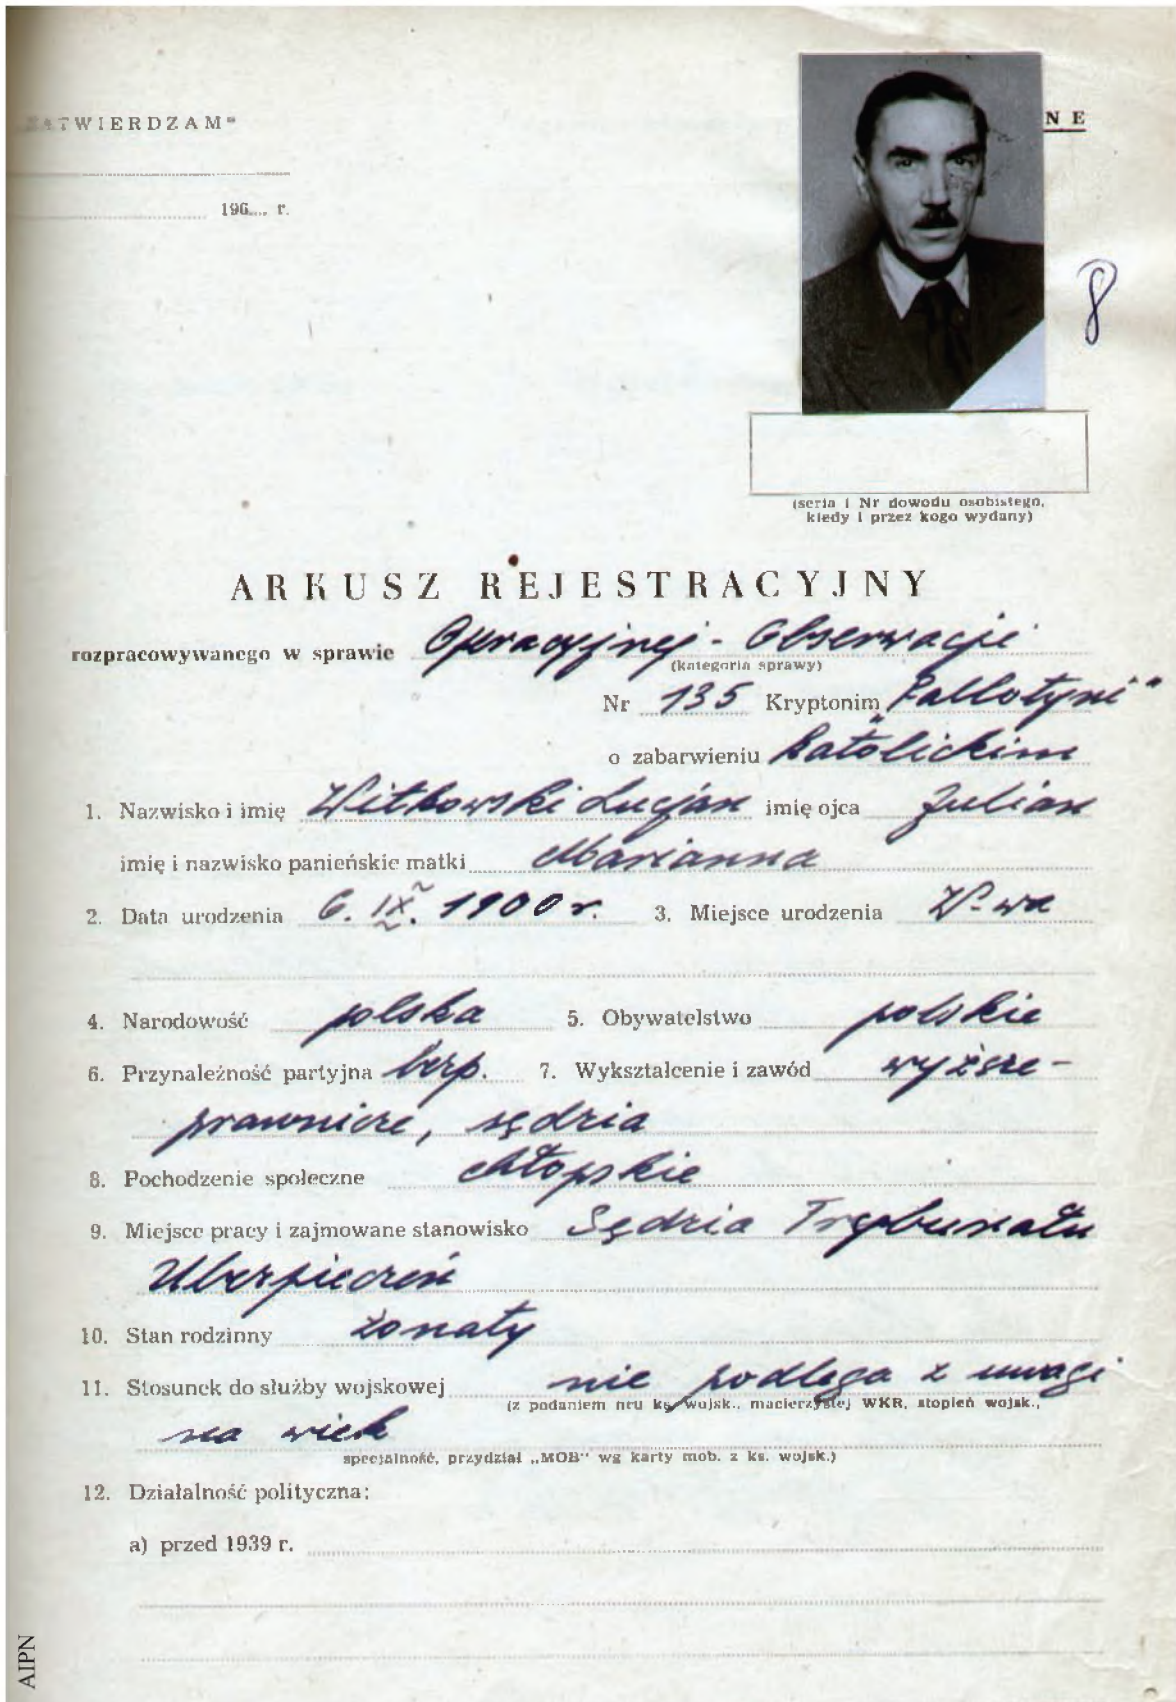 ATWIERDZAM"
NE
196.... r.
8
(seria i Nr dowodu osobistego,
kiedy i przez kogo wydany)
ARKUSZ REJESTRACYJNY
rozpracowywanego w sprawie Operacyjnej - Obserwacji
(kategoria sprawy)
Nr 135 Kryptonim „Pallotyni"
o zabarwieniu katolickim
1. Nazwisko i imię Witkowski Lucjan imię ojca Julian
imię i nazwisko panieńskie matki Marianna
2. Data urodzenia 6. IX. 1900 r. 3. Miejsce urodzenia W-wa
4. Narodowość polska 5. Obywatelstwo polskie
6. Przynależność partyjna bezp. 7. Wykształcenie i zawód wyższe -
prawnicze, sędzia
8. Pochodzenie społeczne chłopskie
9. Miejsce pracy i zajmowane stanowisko Sędzia Trybunału
Ubezpieczeń
10. Stan rodzinny żonaty
11. Stosunek do służby wojskowej nie podlega z uwagi
(z podaniem nru ks. wojsk., macierzystej WKR, stopień wojsk.,
na wiek
specjalność, przydział „MOB" wg karty mob. z ks. wojsk.)
12. Działalność polityczna:
a) przed 1939 r.
AIPN